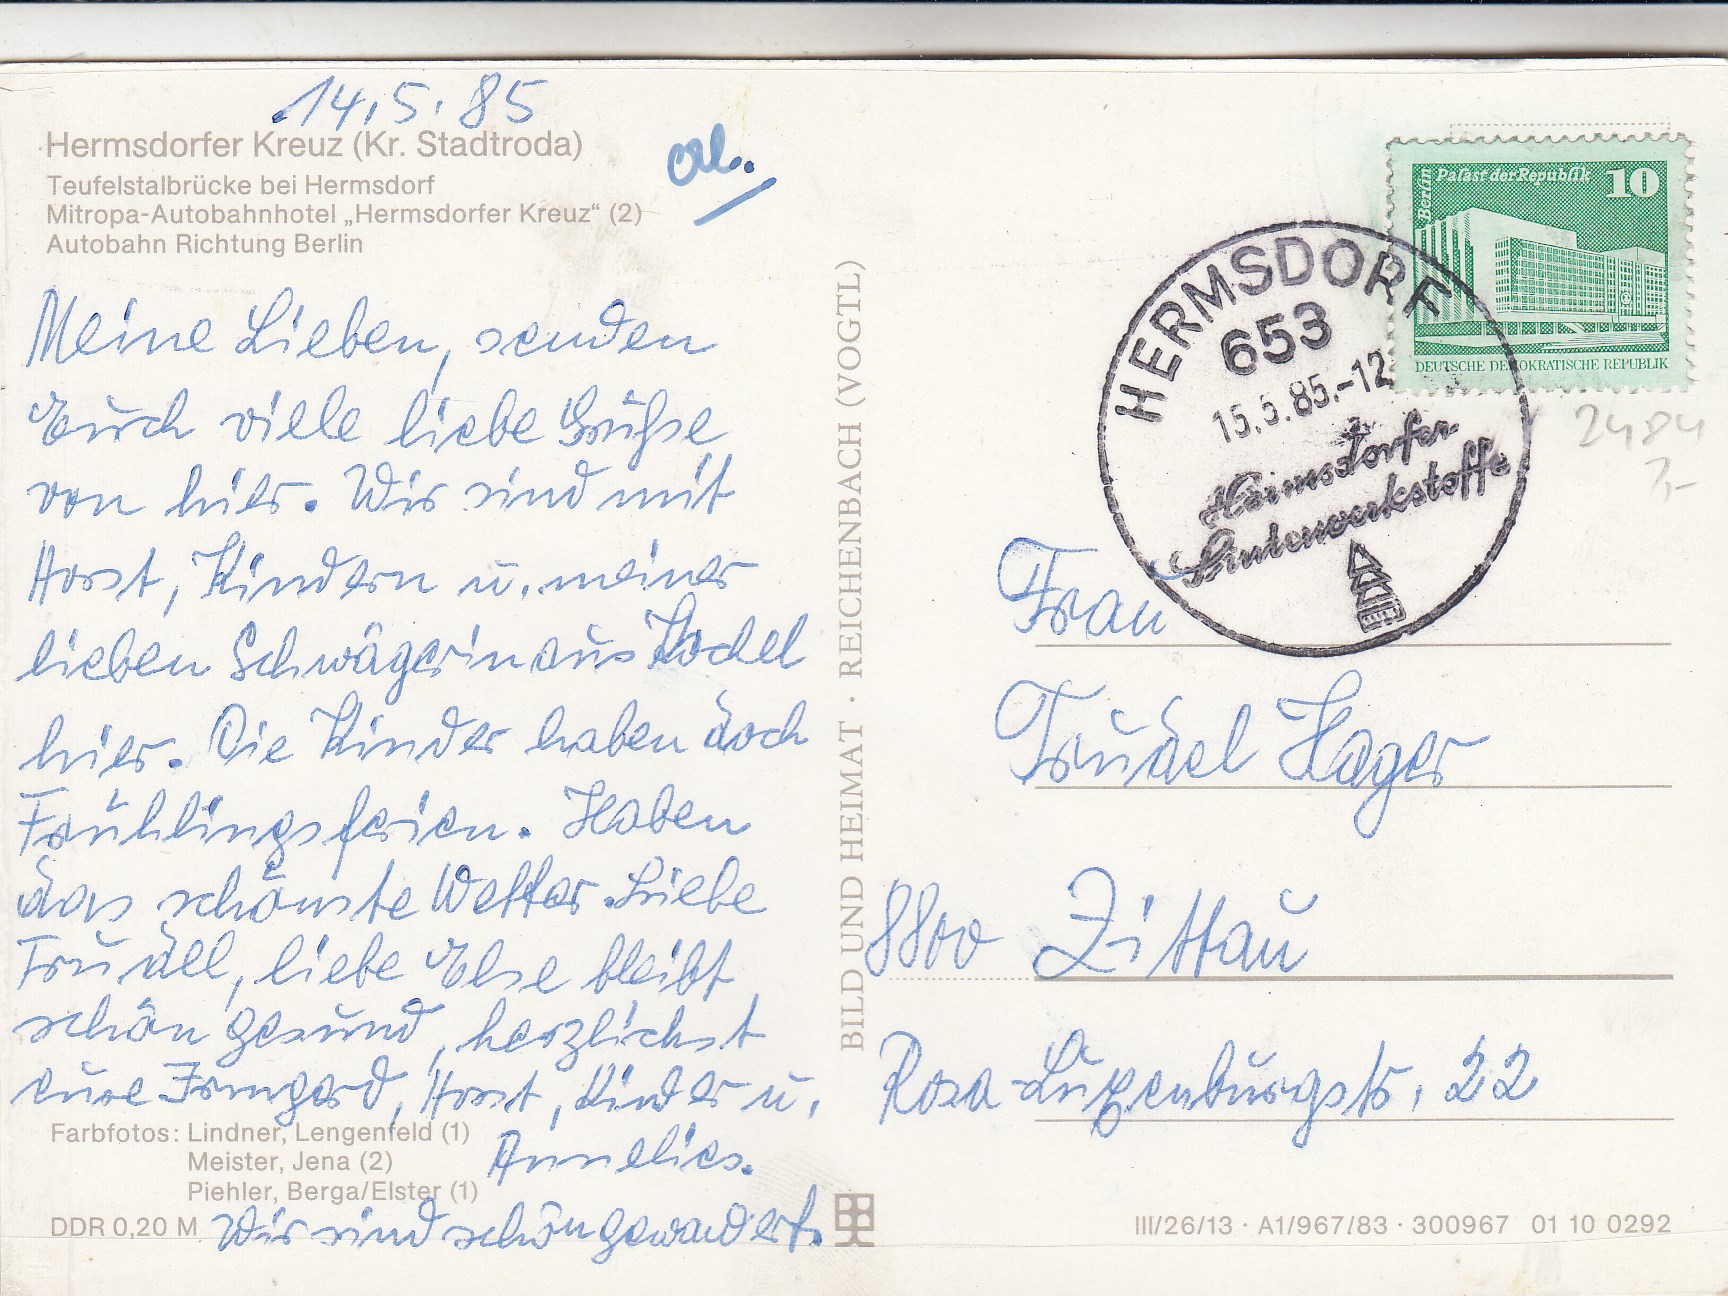 14.5.85
Hermsdorfer Kreuz (Kr. Stadtroda)
Teufelstalbrücke bei Hermsdorf
Mitropa-Autobahnhotel „Hermsdorfer Kreuz“ (2)
Autobahn Richtung Berlin
Meine Lieben, senden
Euch viele liebe Grüße
von hier. Wir sind mit
Horst, Kindern u. meiner
lieben Schwägerin aus Kochel
hier. Die Kinder haben doch
Frühlingsferien. Haben
das schönste Wetter. Liebe
Trudll, liebe Else bleibt
schön gesund, herzlichst
eure Irmgard, Horst, Kinder u.
Annelies.
Wir sind schön gewandert.
Farbfotos: Lindner, Lengenfeld (1)
Meister, Jena (2)
Piehler, Berga/Elster (1)
DDR 0,20 M
BILD UND HEIMAT · REICHENBACH (VOGTL)
Berlin
Palast der Republik 10
DEUTSCHE DEMOKRATISCHE REPUBLIK
HERMSDORF
653
15.5.85.-12
Hermsdorfer
Sinterwerkstoffe
2484
Frau
Trudel Hager
8800 Zittau
Rosa-Luxenburgstr. 22
III/26/13 · A1/967/83 · 300967 01 10 0292